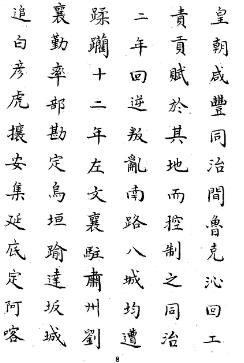 皇朝咸豐同治間魯克沁回工
責貢賦於其地而控制之同治
二年回逆叛亂南路八城均遭
蹂躪十二年左文襄駐肅州劉
襄勤率部勘定烏垣踰達坂城
追白彦虎攘安集延底定阿喀
8